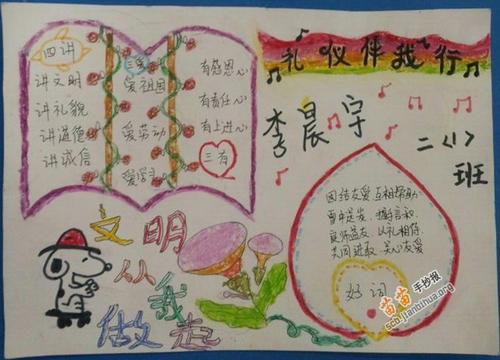 四讲
讲文明
讲礼貌
讲道德
讲诚信
三爱
爱祖国
爱劳动
爱学习
有感恩心
有责任心
有上进心
三有
礼仪伴我行
李晨宇
二<1>
班
团结友爱 互相帮助
握手言和
良师益友 以礼相待
共同进取 关心友爱
好词
文明
从我
做起
苗苗手抄报
scb.jianbihua.org